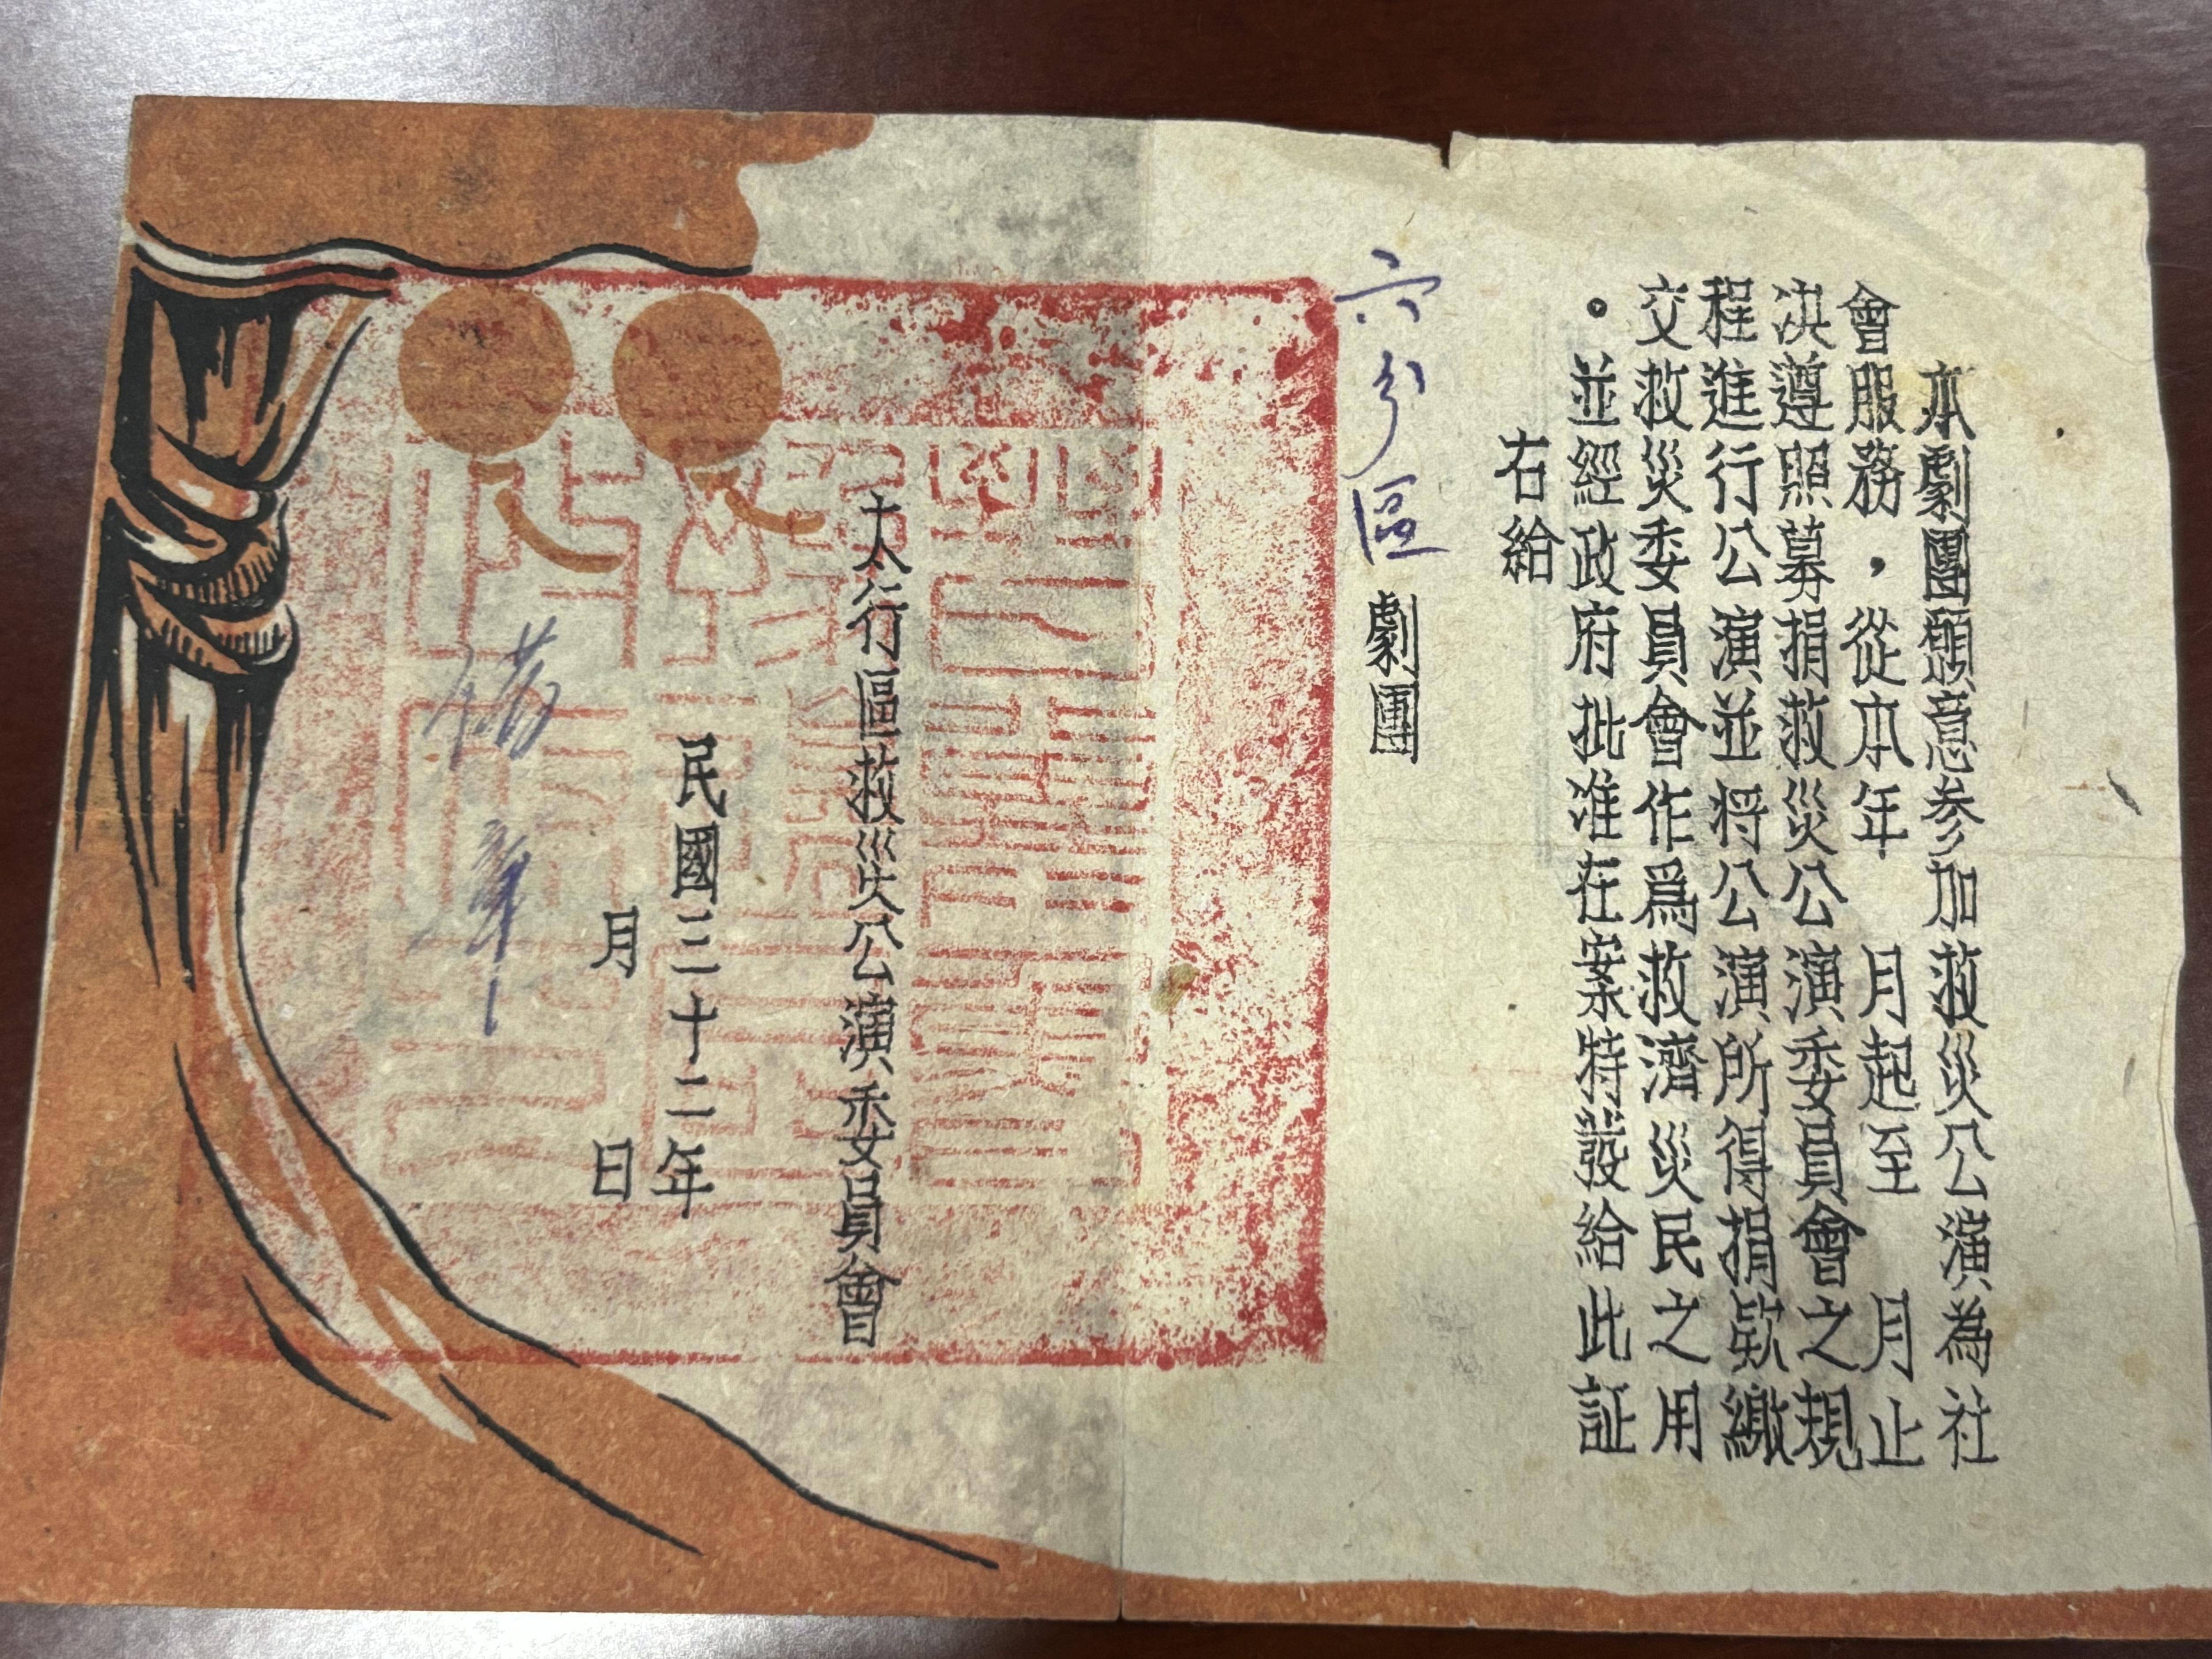 本劇團願意参加救災公演為社
會服務，從本年　月起至　月止
决遵照募捐救災公演委員會之規
程進行公演並将公演所得捐欵繳
交救災委員會作爲救濟災民之用
。並經政府批准在案特發給此証
右給
六分區劇團
太行區救災公演委員會
民國三十二年
月　日
借章